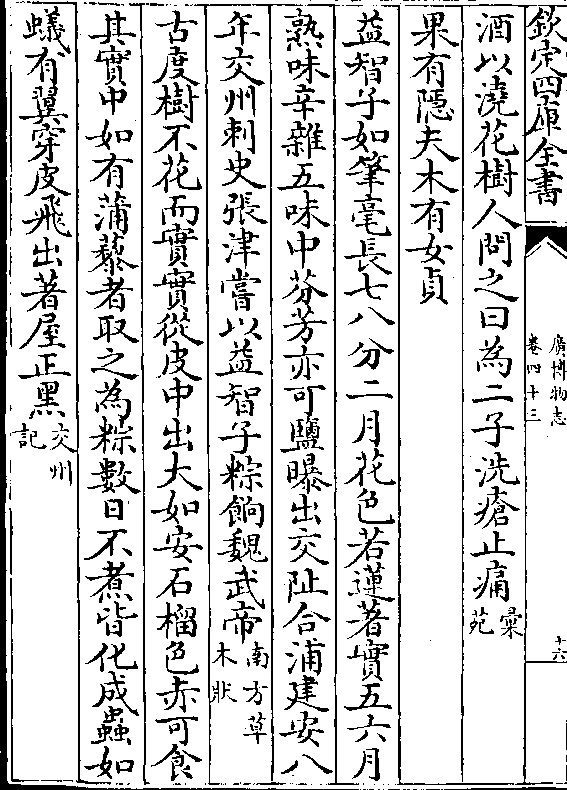 欽定四庫全書
廣博物志
卷四十三
十六
酒以澆花樹人問之曰為二子洗瘡止痛彙苑
果有隱夫木有女貞
益智子如筆毫長七八分二月花色若蓮著實五六月
熟味辛雜五味中芬芳亦可鹽曝出交阯合浦建安八
年交州刺史張津嘗以益智子粽餉魏武帝南方草木狀
古度樹不花而實實從皮中出大如安石榴色赤可食
其實中如有蒲藜者取之為粽數日不煮皆化成蟲如
蟻有翼穿皮飛出著屋正黑交州記